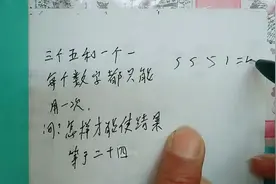 三个五和一个一
每个数字都只能
用一次.
问:怎样才能使结果
等于二十四
5 5 5 1 =